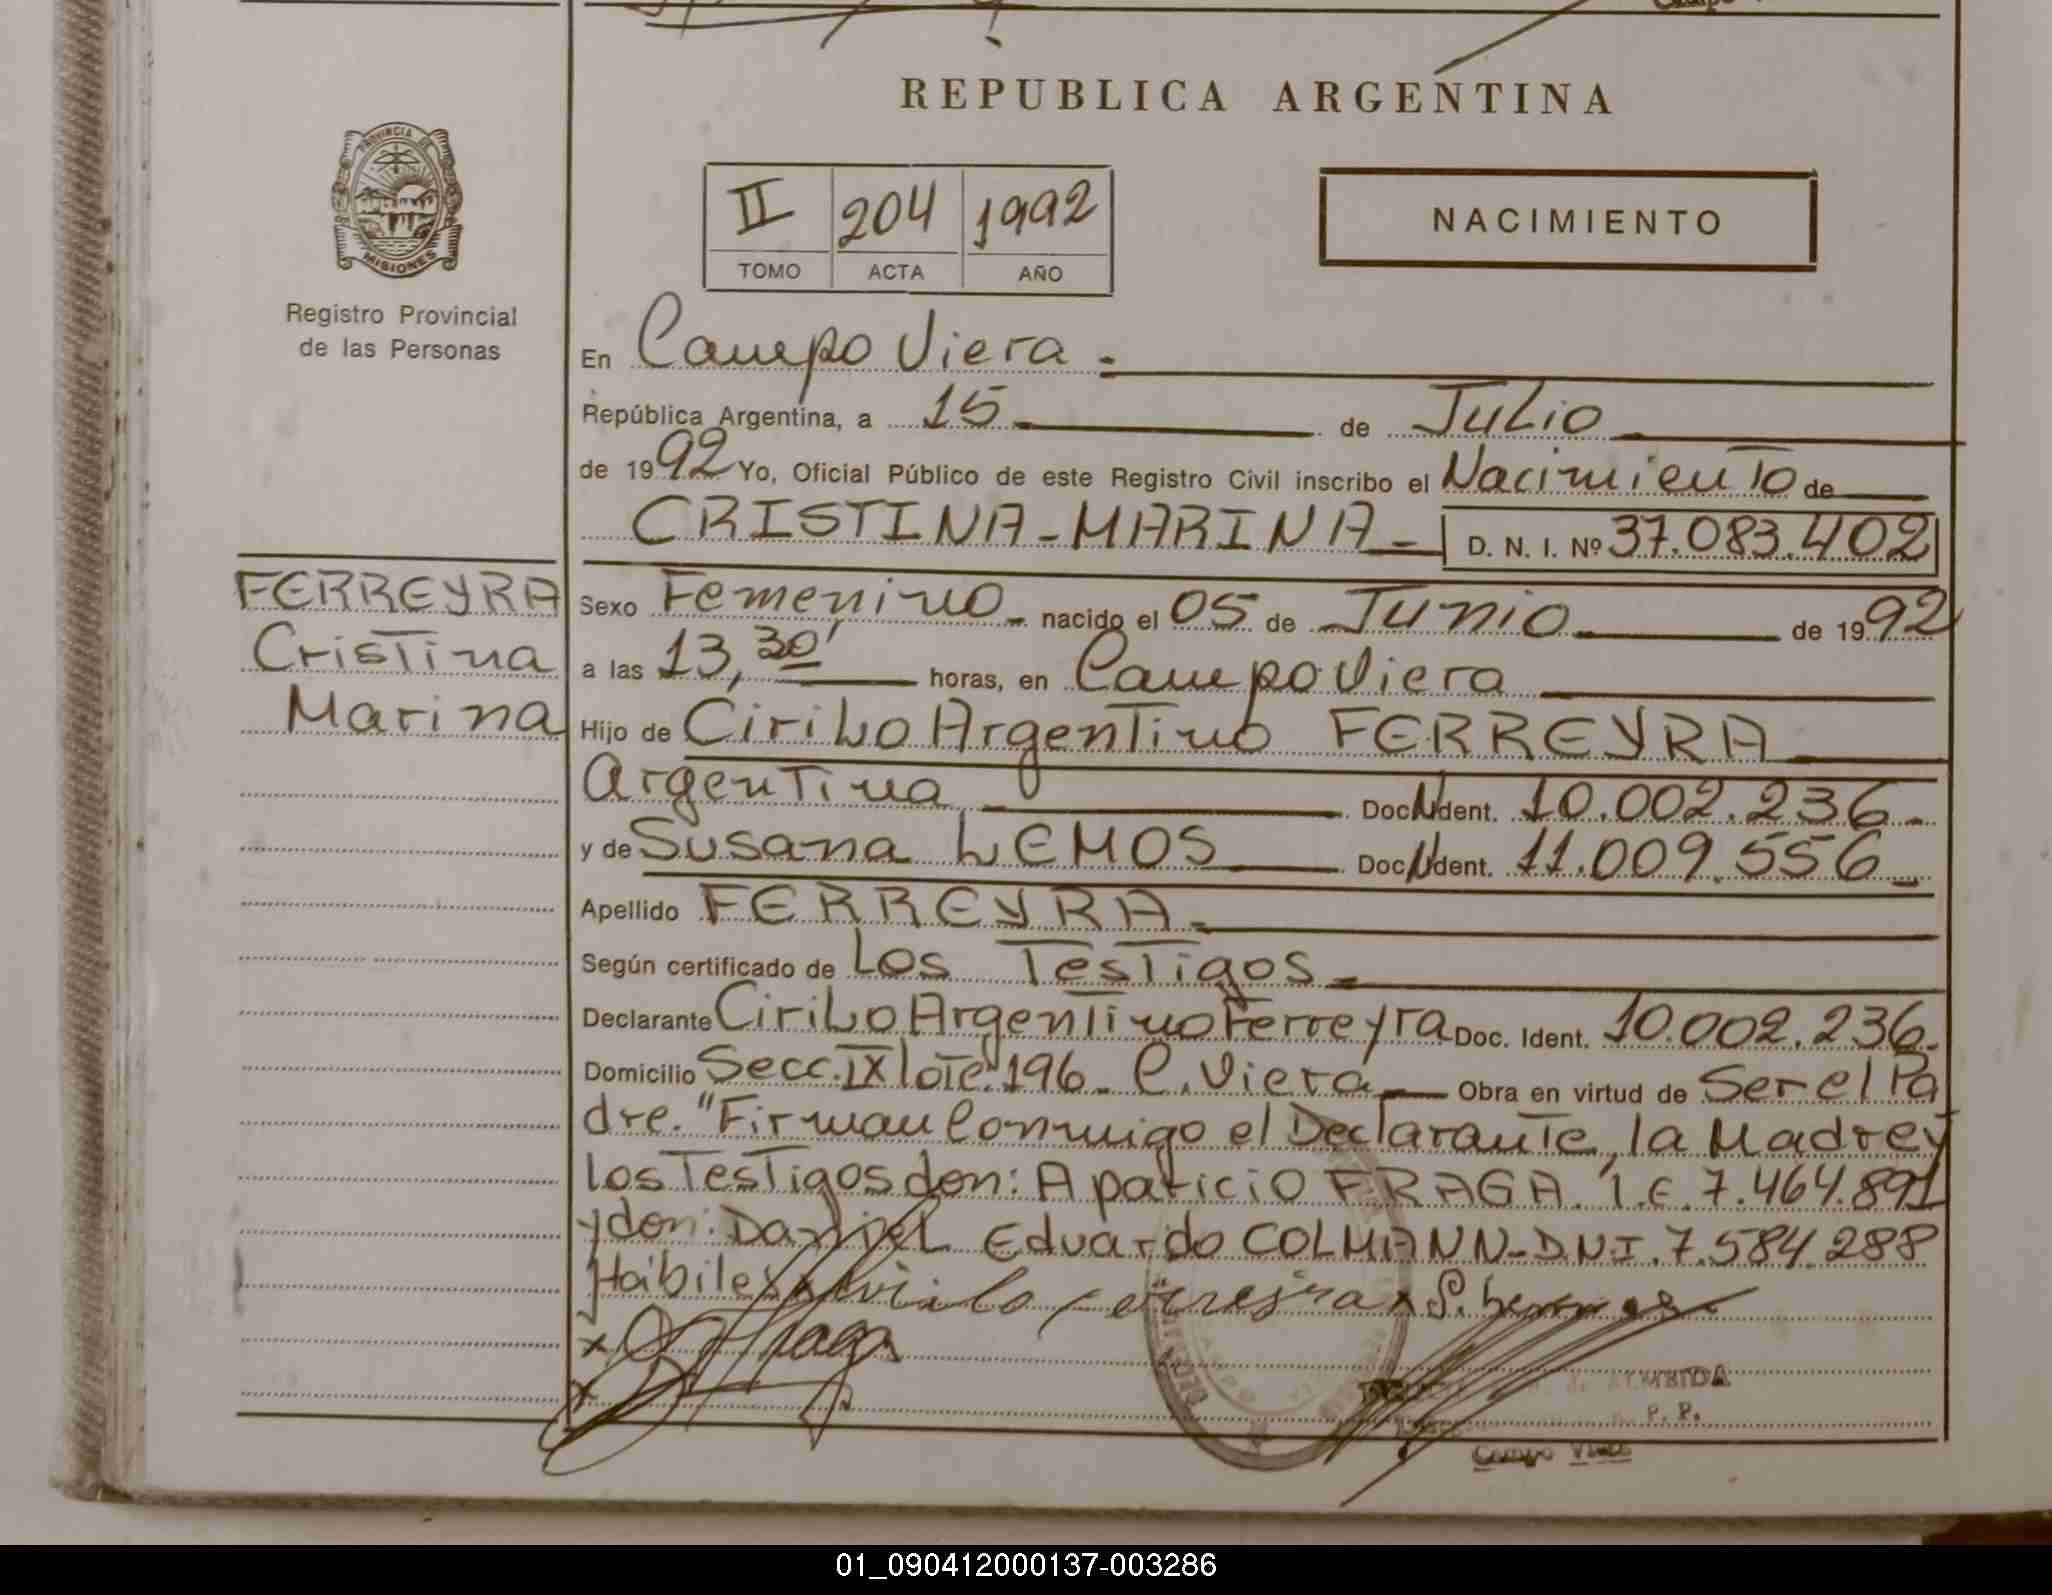 REPUBLICA ARGENTINA
PROVINCIA DE
MISIONES
Registro Provincial
de las Personas
II 204 1992
TOMO ACTA AÑO
NACIMIENTO
En Campo Viera.
República Argentina, a 15 de Julio
de 1992 Yo, Oficial Público de este Registro Civil inscribo el Nacimiento de
CRISTINA-MARINA - D. N. I. Nº 37.083.402
FERREYRA
Cristina
Marina
Sexo Femenino nacido el 05 de Junio de 1992
a las 13,30' horas, en Campo Viera
Hijo de Cirilo Argentino FERREYRA
Argentina Doc. Ident. 10.002.236
y de Susana LEMOS Doc. Ident. 11.009.556
Apellido FERREYRA
Según certificado de Los Testigos
Declarante Cirilo Argentino Ferreyra Doc. Ident. 10.002.236
Domicilio Secc. IX lote 196 C. Viera Obra en virtud de Ser el Pa
dre. "Firman Conmigo el Declarante, la Madre y
los Testigos don: Aparicio FRAGA. L.E 7.464.891
y don: Daniel Eduardo COLMANN-D.N.I. 7.584.288
Hábiles
ALMEIDA
P. P.
Campo Viera
01_090412000137-003286